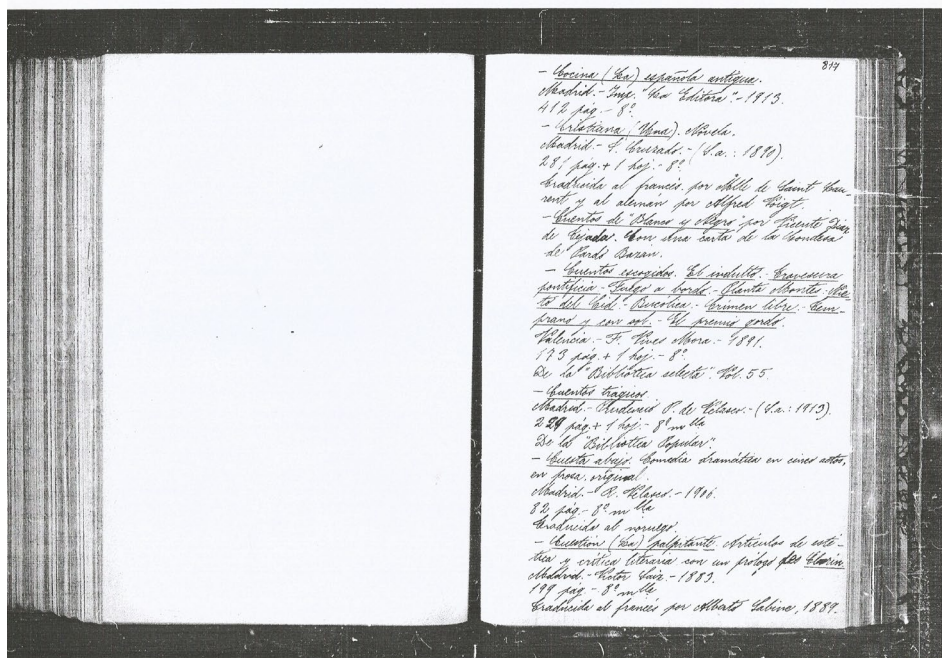 817
- Cocina (La) española antigua.
Madrid.- Imp. "La Editora".- 1913.
412 pág.- 8º.
- Cristiana (Una). Novela.
Madrid.- S. Cruzado.- (S.a.: 1890).
281 pág.+ 1 hoj.- 8º.
Traducida al francés por Mlle de Saint Lau-
rent y al alemán por Alfred Voigt.
- Cuentos de Blanco y Negro por Vicente Díaz
de Tejada. Con una carta de la Condesa
de Pardo Bazán.
- Cuentos escogidos. El indulto.- Travesura
pontificia.- Fuego a bordo.- Planta Montes.-
to del Cid.- Bucólica.- Crimen libre.- Tem-
prano y con sol.- El premio gordo.
Valencia.- F. Vives Mora.- 1891.
173 pág.+ 1 hoj.- 8º.
De la "Biblioteca selecta". Vol. 55.
- Cuentos trágicos.
Madrid.- P. de Velasco.- (S.a.: 1913).
229 pág.+ 1 hoj.- 8º mlla
De la "Biblioteca Popular".
- Cuesta abajo. Comedia dramática en cinco actos,
en prosa, original.
Madrid.- R. Velasco.- 1906.
82 pág.- 8º mlla
Traducida al noruego.
- Cuestión (La) palpitante. Artículos de esté-
tica y crítica literaria con un prólogo de Clarín
Madrid.- Víctor Saiz.- 1883.
199 pág.- 8º mlla
Traducida al francés por Alberto Savine, 1889.